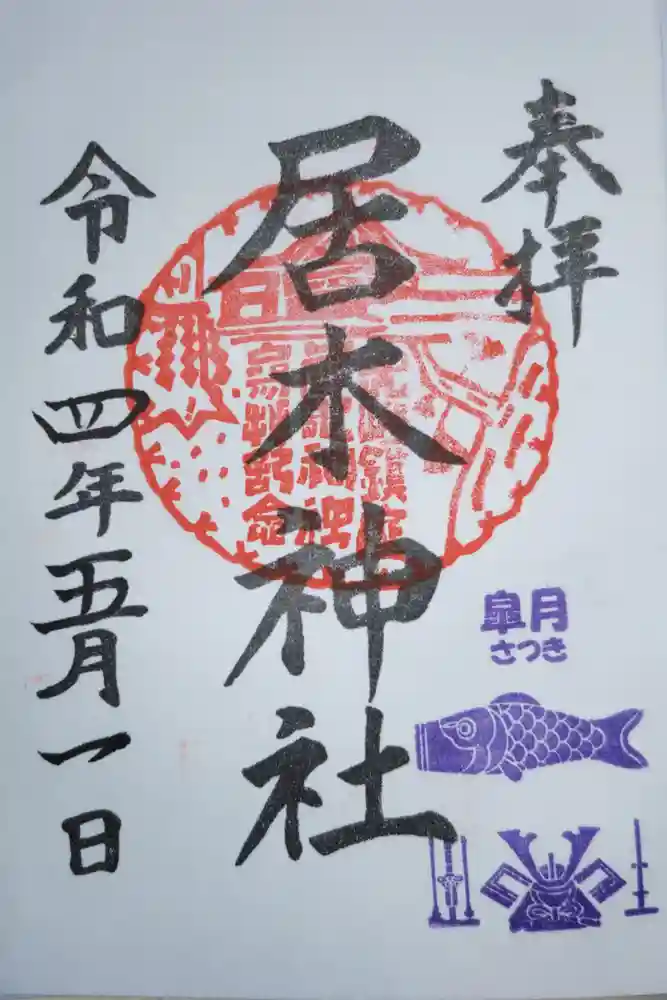 奉拝
居木神社
令和四年五月一日
皐月
さつき